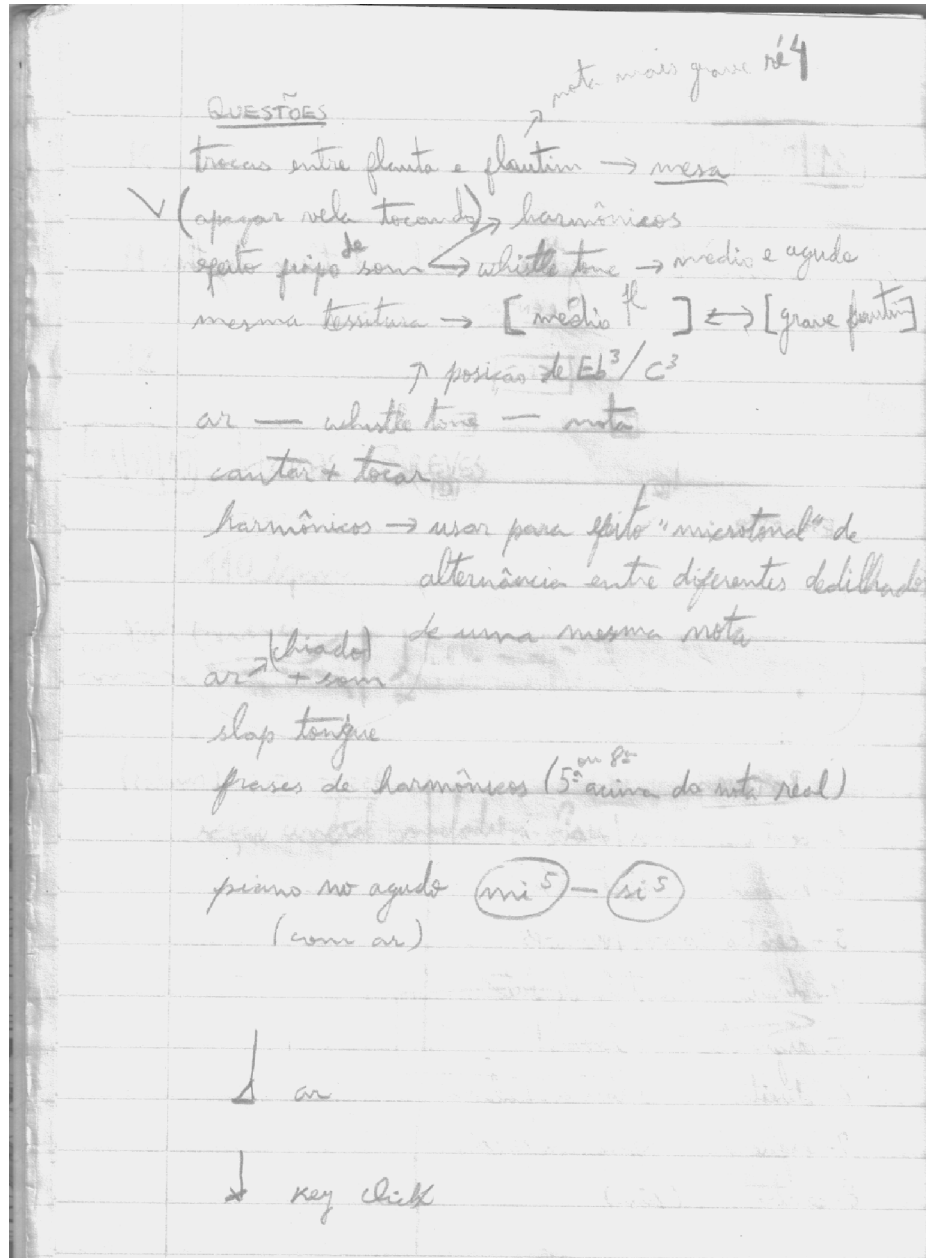 nota mais grave ré4
QUESTÕES
trocas entre flauta e flautim → mesa
(apagar vela tocando) → harmônicos
efeito de som → whistle tone → médio e agudo
mesma tessitura → [médio fl ] ↔ [grave flautim]
↑ posição de Eb³/C³
ar — whistle tone — nota
cantar + tocar
harmônicos → usar para efeito "microtonal" de
alternância entre diferentes dedilhados
de uma mesma nota
(chiado)
ar + som
slap tongue
frases de harmônicos (5ª ou 8ª acima da nota real)
piano no agudo mi⁵ — si⁵
(com ar)
ar
key click